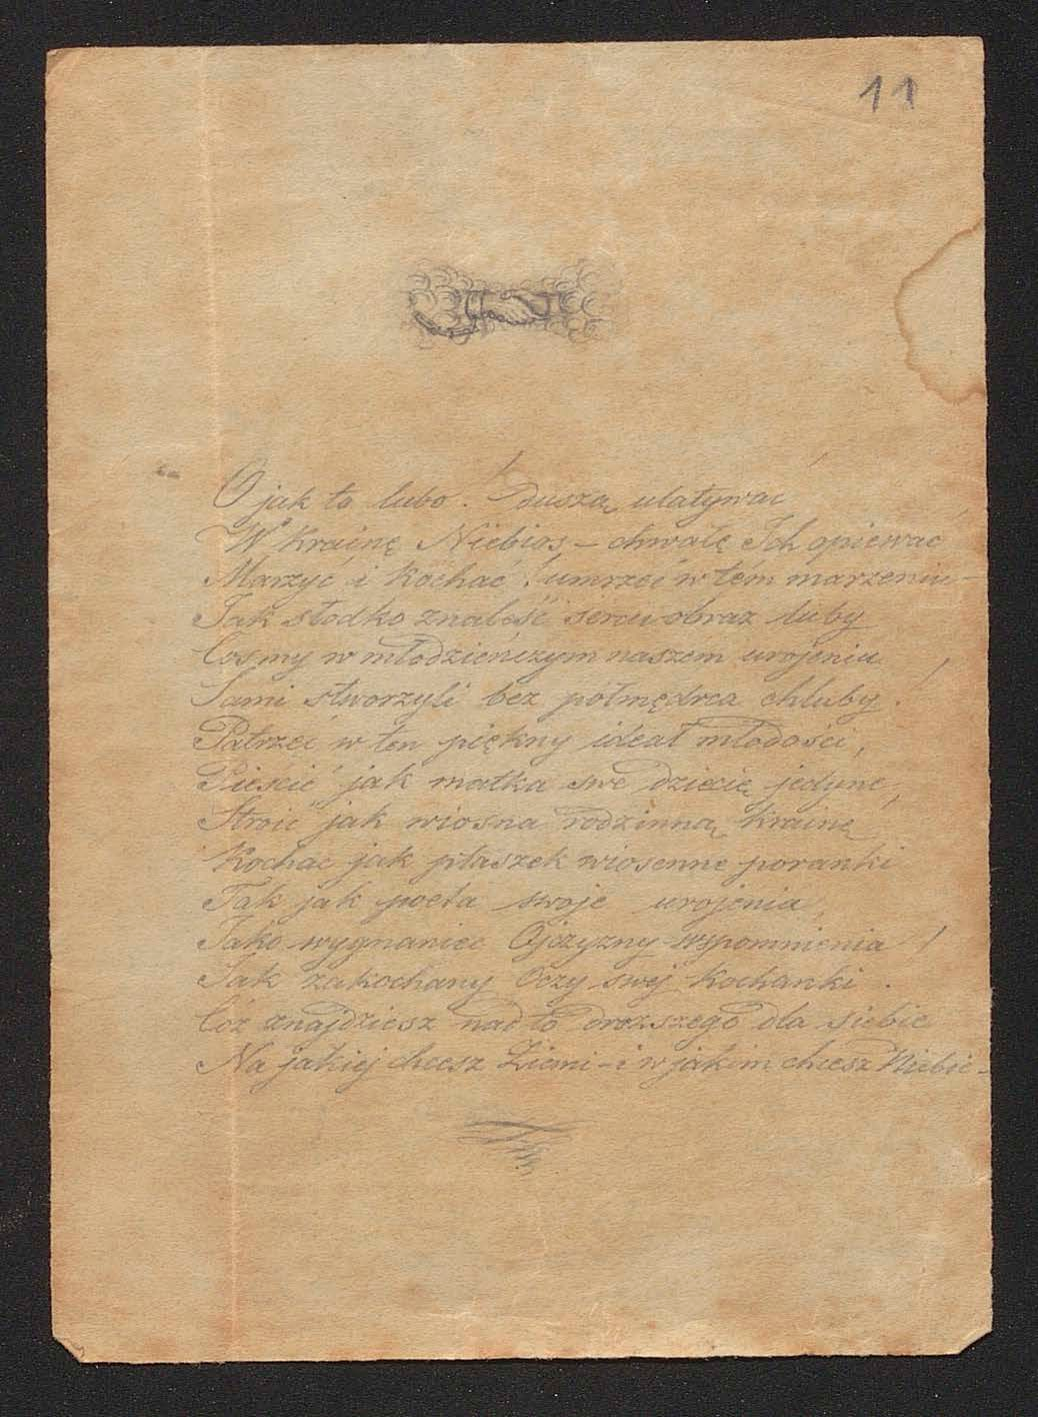 11
O jak to lubo! Duszą ulatywać
W Krainę Niebios – chwałę Ich opiewać
Marzyć i kochać! umrzeć w tém marzeniu –
Jak słodko znaleść sercu obraz luby
Cośmy w młodzieńczym naszem urojeniu
Sami stworzyli bez półmędrca chluby!
Patrzeć w ten piękny ideał młodości,
Pieścić jak matka swe dziecię jedyne,
Stroić jak wiosna rodzinną krainę
Kochać jak ptaszek wiosenne poranki
Tak jak poeta swoje urojenia,
Jako wygnaniec Ojczyzny wspomnienia!
Jak zakochany Oczy swej Kochanki.
Cóż znajdziesz nad to droższego dla siebie
Na jakiej chcesz Ziemi – i w jakim chcesz Niebie –